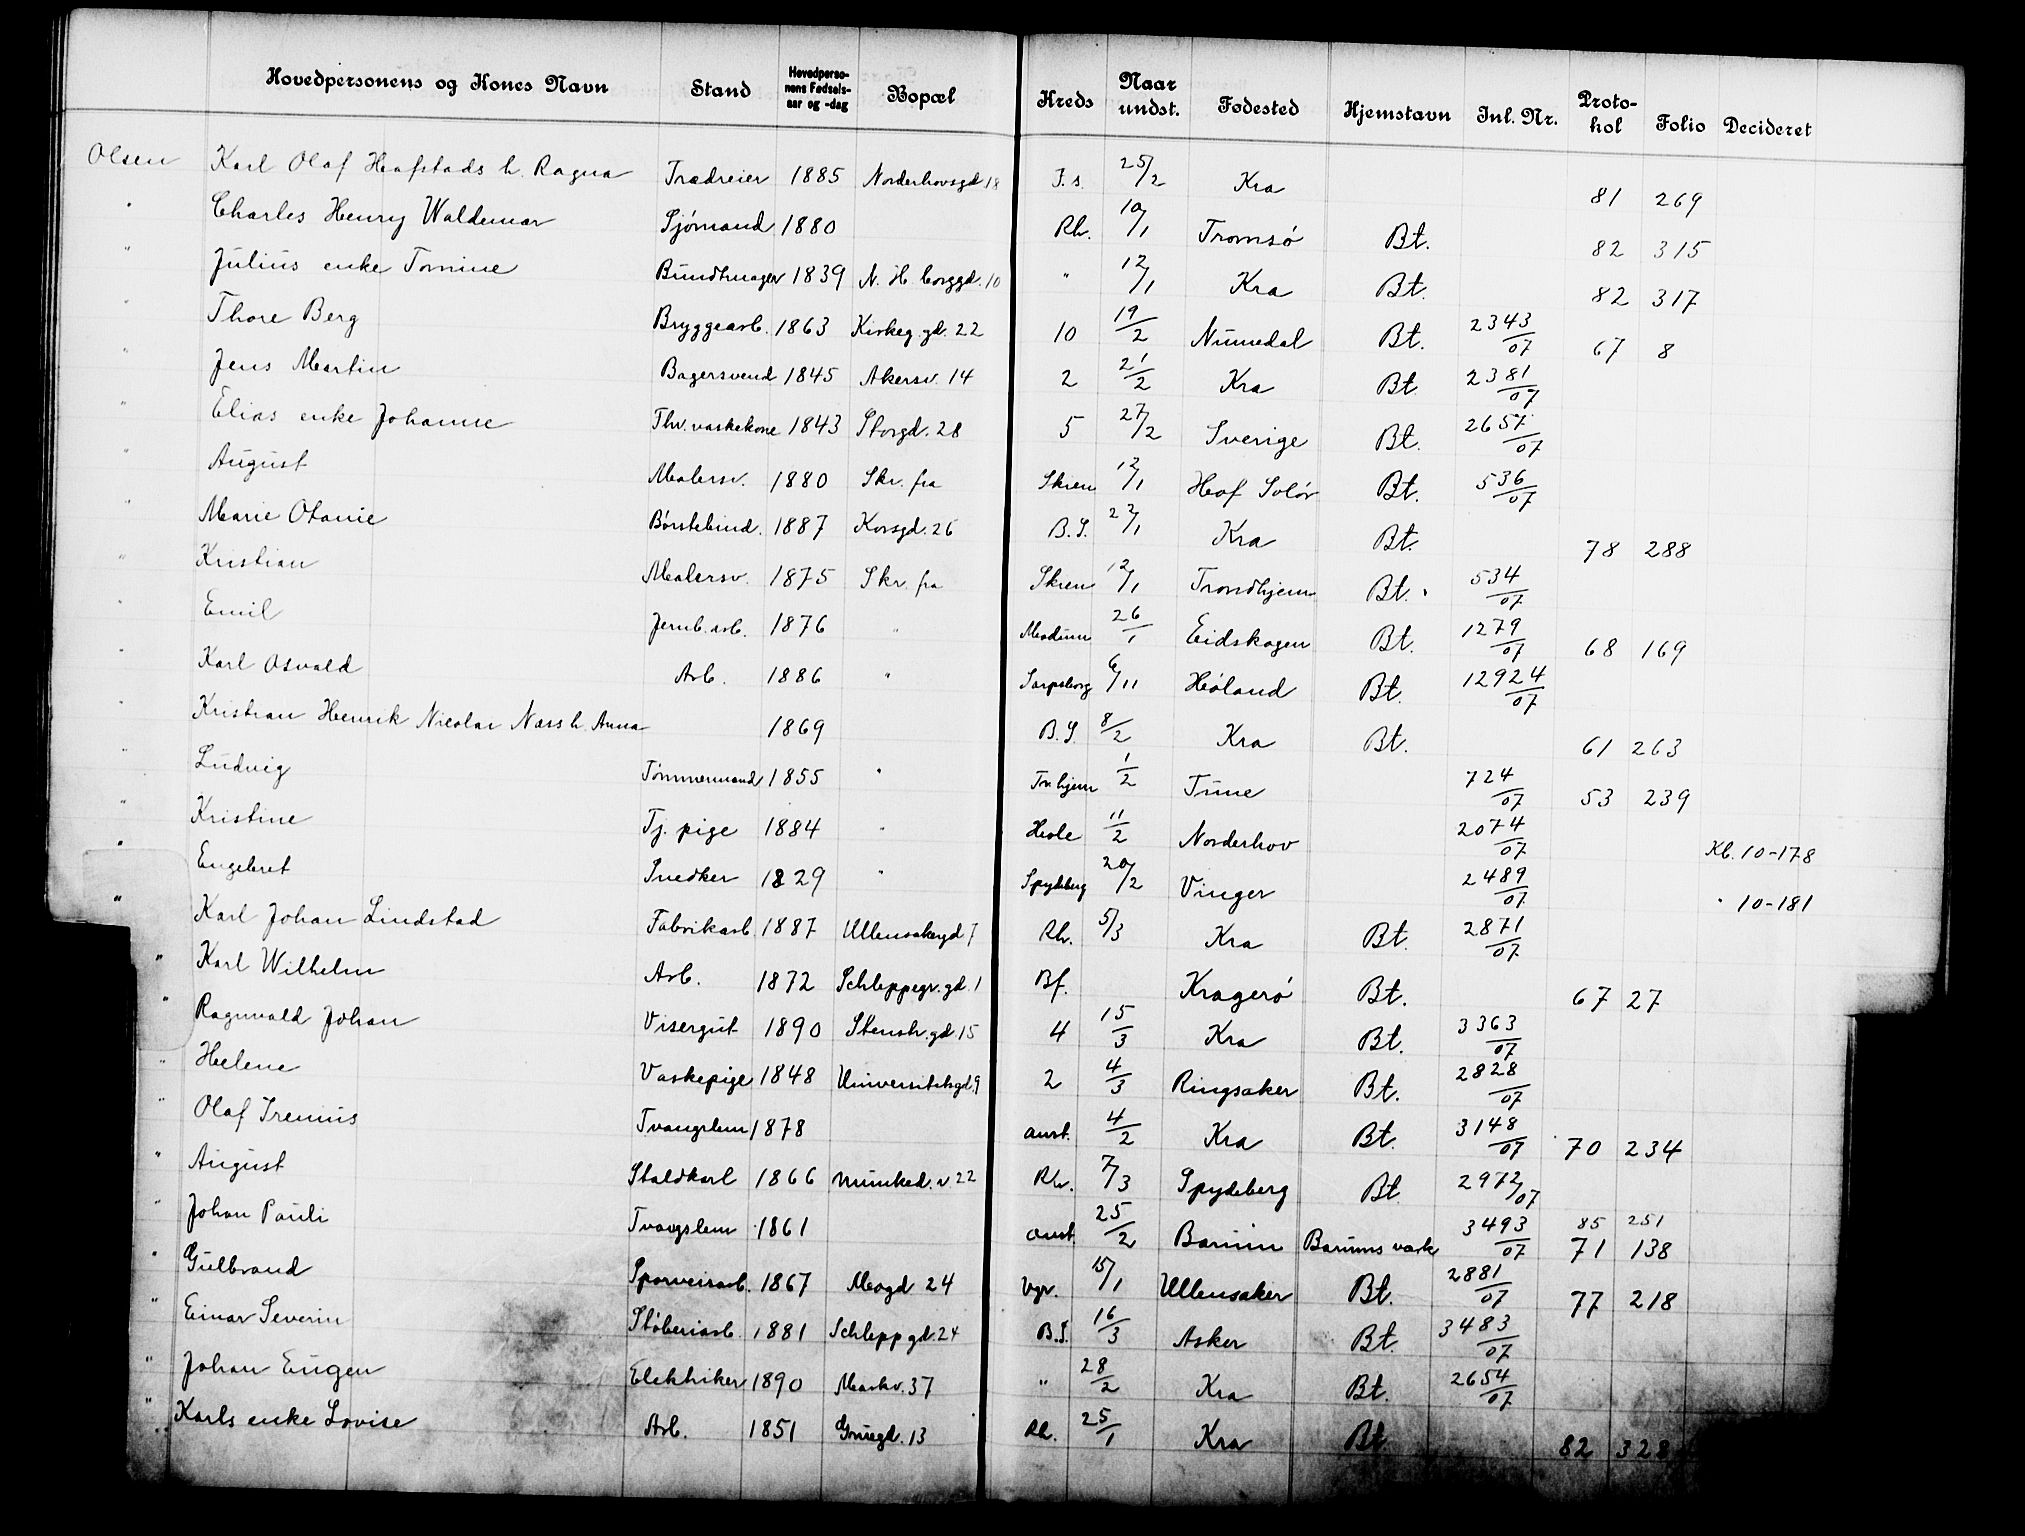 Hovedpersonens og Kones Navn Stand Hovedpersonens Fødselsaar og -dag Bopæl Kreds Naar undst. Fødested Hjemstavn Inl. Nr. Protokol Folio Decideret
Olsen Karl Olaf Hafstads h. Ragna Trædreier 1885 Norderhovsgd 18 F.s. 25/2 Kra 81 269
" Charles Henry Waldemar Sjømand 1880 Rh. 10/1 Tromsø Bt. 82 315
" Julius enke Tomine Bundtmager 1839 N. H. borggd. 10 " 12/1 Kra Bt. 82 317
" Thore Berg Bryggearb. 1863 Kirkeg. gd. 22 10 19/2 Numedal Bt. 2343/07 67 8
" Jens Martin Bagersvend 1845 Akersv. 14 2 21/2 Kra Bt. 2381/07
" Elias enke Johanne Fhv. vaskekone 1843 Storgd. 28 5 27/2 Sverige Bt. 2657/07
" August Malersv. 1880 Skr. fra Skien 12/1 Hof Solør Bt. 536/07
" Marie Otanie Børstebind. 1887 Korsgd. 26 B.S. 22/1 Kra Bt. 78 288
" Kristian Malersv. 1875 Skr. fra Skien 12/1 Trondhjem Bt. 534/07
" Emil Jernb. arb. 1876 " Modum 26/1 Eidskogen Bt. 1279/07 68 169
" Karl Osvald Arb. 1886 " Sarpsborg 6/11 Høland Bt. 12924/07
" Kristian Henrik Nicolai Næss h. Anna 1869 B.S. 8/2 Kra Bt. 61 263
" Ludvig Tømmermand 1855 " Tr.hjem 1/2 Tune 724/07 53 239
" Kristine Tj. pige 1884 " Hole 11/2 Norderhov 2074/07 Kb. 10-178
" Engebret Snedker 1829 " Spydeberg 20/2 Vinger 2489/07 " 10-181
" Karl Johan Lindstad Fabrikarb. 1887 Ullensakergd 7 Rh. 5/3 Kra Bt. 2871/07
" Karl Wilhelm Arb. 1872 Schleppegr. gd. 1 Bf. Kragerø Bt. 67 27
" Ragnvald Johan Visergut 1890 Stenstr. gd. 15 4 15/3 Kra Bt. 3363/07
" Helene Vaskepige 1848 Universitetsgd. 9 2 4/3 Ringsaker Bt. 2828/07
" Olaf Irenius Tvangslem 1878 anst. 4/2 Kra Bt. 3148/07 70 234
" August Staldkarl 1866 Munked. v 22 Rh. 7/3 Spydeberg Bt. 2972/07
" Johan Pauli Tvangslem 1861 anst. 25/2 Bærum Bærums værk 3493/07 85 251
71 138
" Gulbrand Sporveisarb. 1867 Mogd 24 Vgr. 15/1 Ullensaker Bt. 2881/07 77 218
" Einar Severin Støberiarb. 1881 Schlepp gd. 24 B.S. 16/3 Asker Bt. 3483/07
" Johan Eugen Elektriker 1890 Markv. 37 " 28/2 Kra Bt. 2654/07
" Karls enke Lovise Arb. 1851 Grønegd. 13 Rh. 25/1 Kra Bt. 82 328